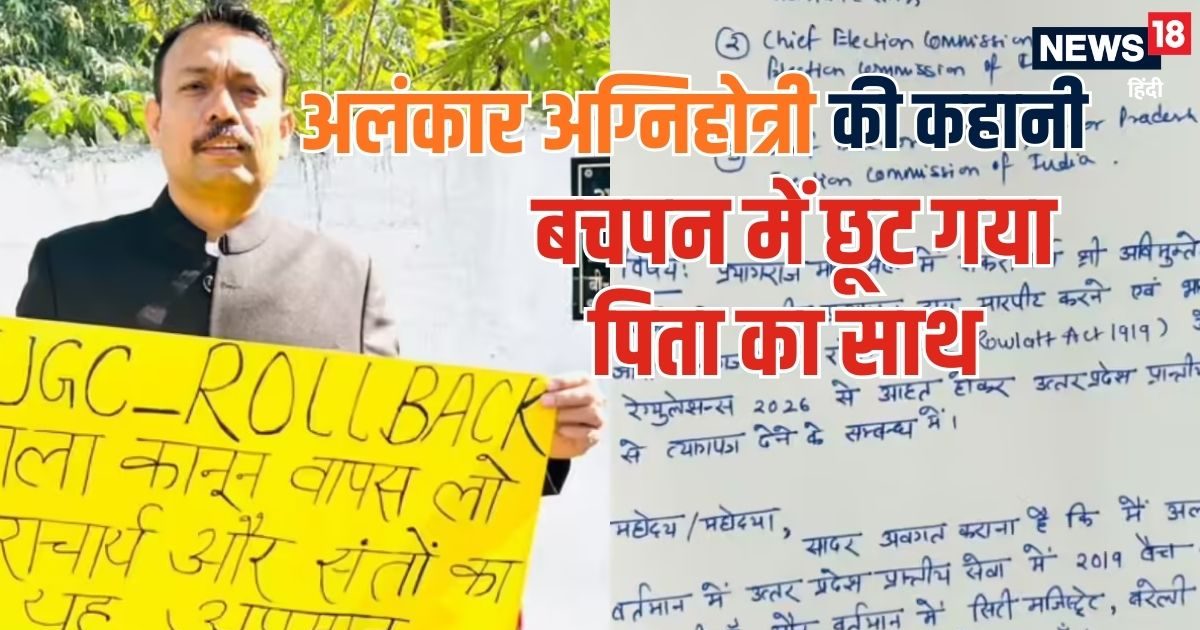 NEWS 18
हिंदी
अलंकार अग्निहोत्री की कहानी
बचपन में छूट गया
पिता का साथ
UGC_ROLLBACK
कानून वापस लो
और संतों का
यह
② Chief Election Commission
Election Commission of
Pradesh
Commission of India.
विषय: प्रयागराज में श्री
मारपीट करने एवं
Rowlatt Act 1919)
रेगुलेशन्स 2026 से आहत होकर उत्तर प्रदेश
से त्यागपत्र देने के सम्बन्ध में।
महोदय/महोदया,
सादर अवगत कराना है कि मैं
वर्तमान में उत्तर प्रदेश प्रान्तीय सेवा में 2019 बैच
और वर्तमान में सिटी मजिस्ट्रेट, बरेली